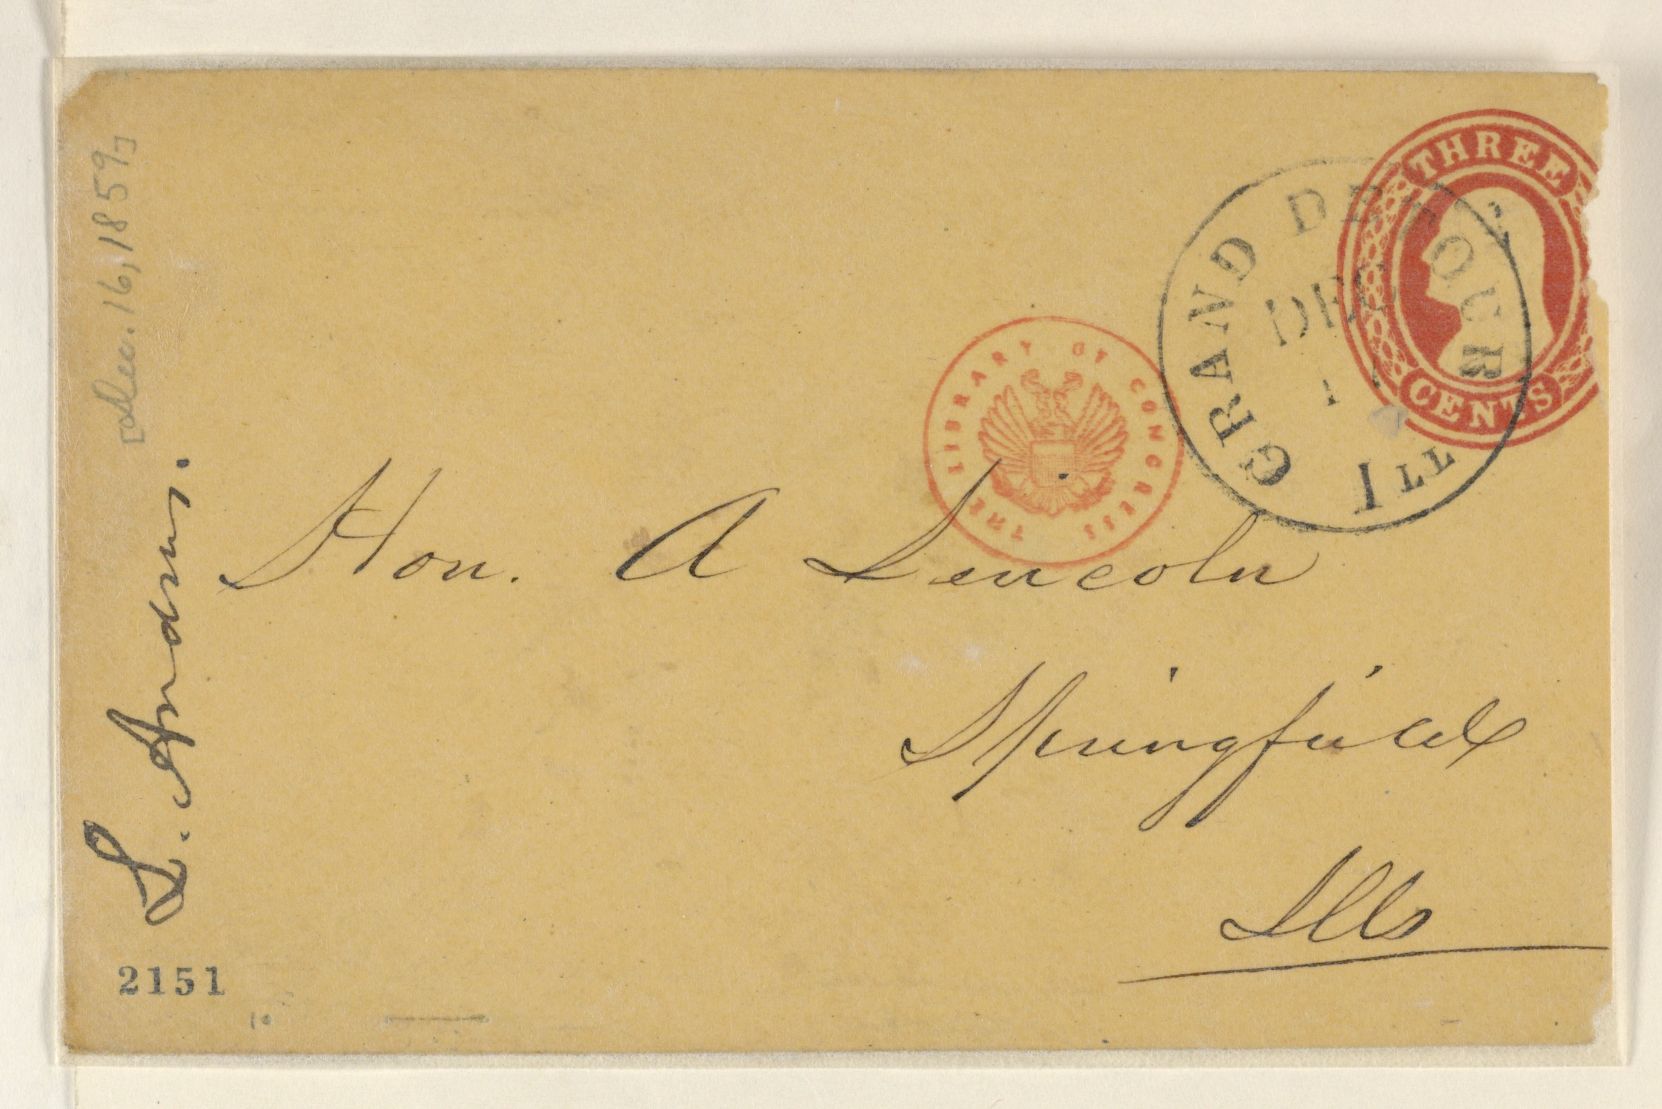 [Dec. 16, 1859]
THREE
CENTS
GRAND DETOUR
DEC
ILL
THE LIBRARY OF CONGRESS
Hon. A Lincoln
Springfield
Ills
2151